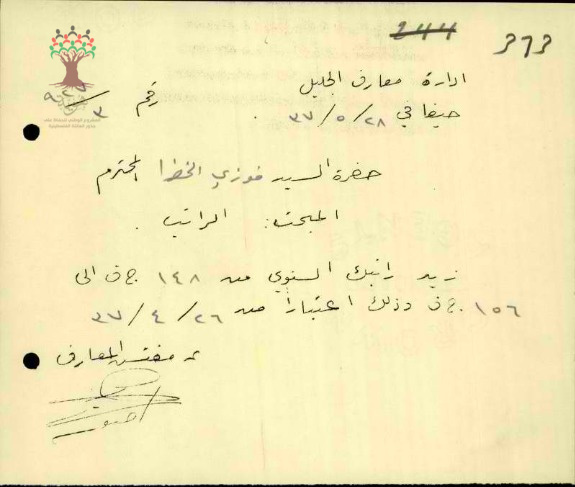 244
373
ادارة معارف الجليل
حيفا في ٢٨/٥/٣٧ رقم ٣/
حضرة السيد فوزي الخضرا المحترم
المبحث: الراتب.
زيد راتبك السنوي من ١٤٨ ج ف الى
١٥٦ ج ف وذلك اعتباراً من ٢٦/٤/٣٧
عن مفتش المعارف